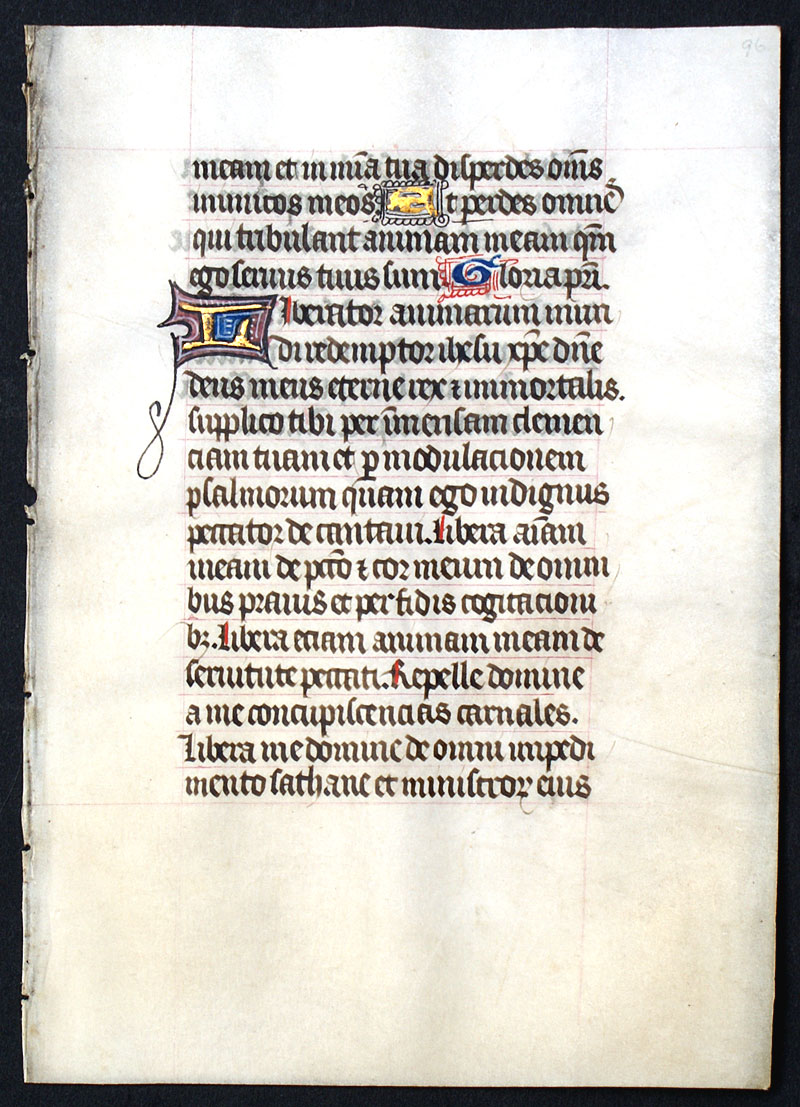 96
meam et in mīa tua disperdes om̄s
inimicos meos Et perdes omnes
qui tribulant animam meam qm̄
ego seruus tuus sum Gloria pr̄i.
Liberator animarum mun
di redemptor ihesu xp̄e dn̄e
deus meus eterne rex ⁊ immortalis.
supplico tibi per īmensam clemen
ciam tuam et ꝑ modulacionem
psalmorum quam ego indignus
peccator de cantaui. Libera aīam
meam de pctō ⁊ cor meum de omni
bus prauis et perfidis cogitacioni
bꝫ. Libera eciam animam meam de
seruitute peccati. Repelle domine
a me concupiscencias carnales.
Libera me domine de omni impedi
mento sathane et ministroꝝ eius